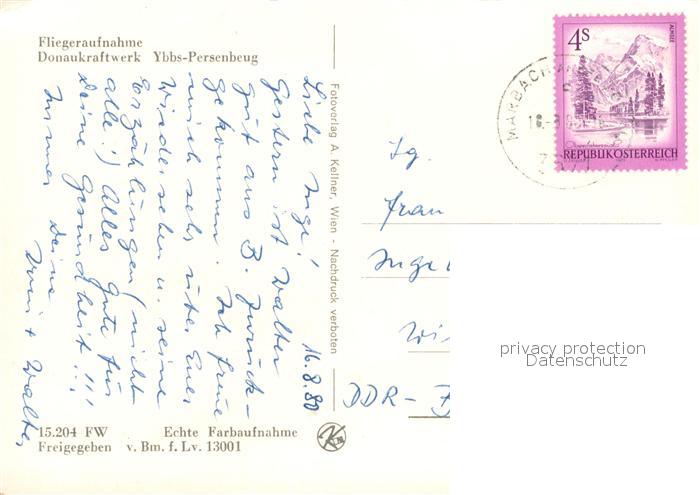 Fliegeraufnahme
Donaukraftwerk Ybbs-Persenbeug
16.8.80
Liebe Inge!
Gestern ist Walter
gut aus B. zurück-
gekommen. Ich freue
mich sehr über Euer
Wiedersehen u. seine
Erzählungen (nicht
alle!) Alles Gute für
Deine Gesundheit!!!
Immer Deine
+ Walter
Fotoverlag A. Kellner, Wien - Nachdruck verboten
15.204 FW Echte Farbaufnahme
Freigegeben v. Bm. f. Lv. 13001
4S
ALMSEE
REPUBLIK ÖSTERREICH
MARBACH AN
Frau
Inge
DDR-
privacy protection
Datenschutz